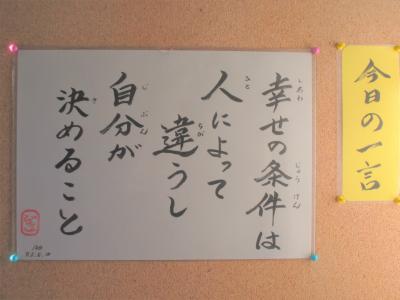 今日の一言
幸せの条件は
人によって
違うし
自分が
決めること
しあわ
じょうけん
ひと
ちが
じぶん
き